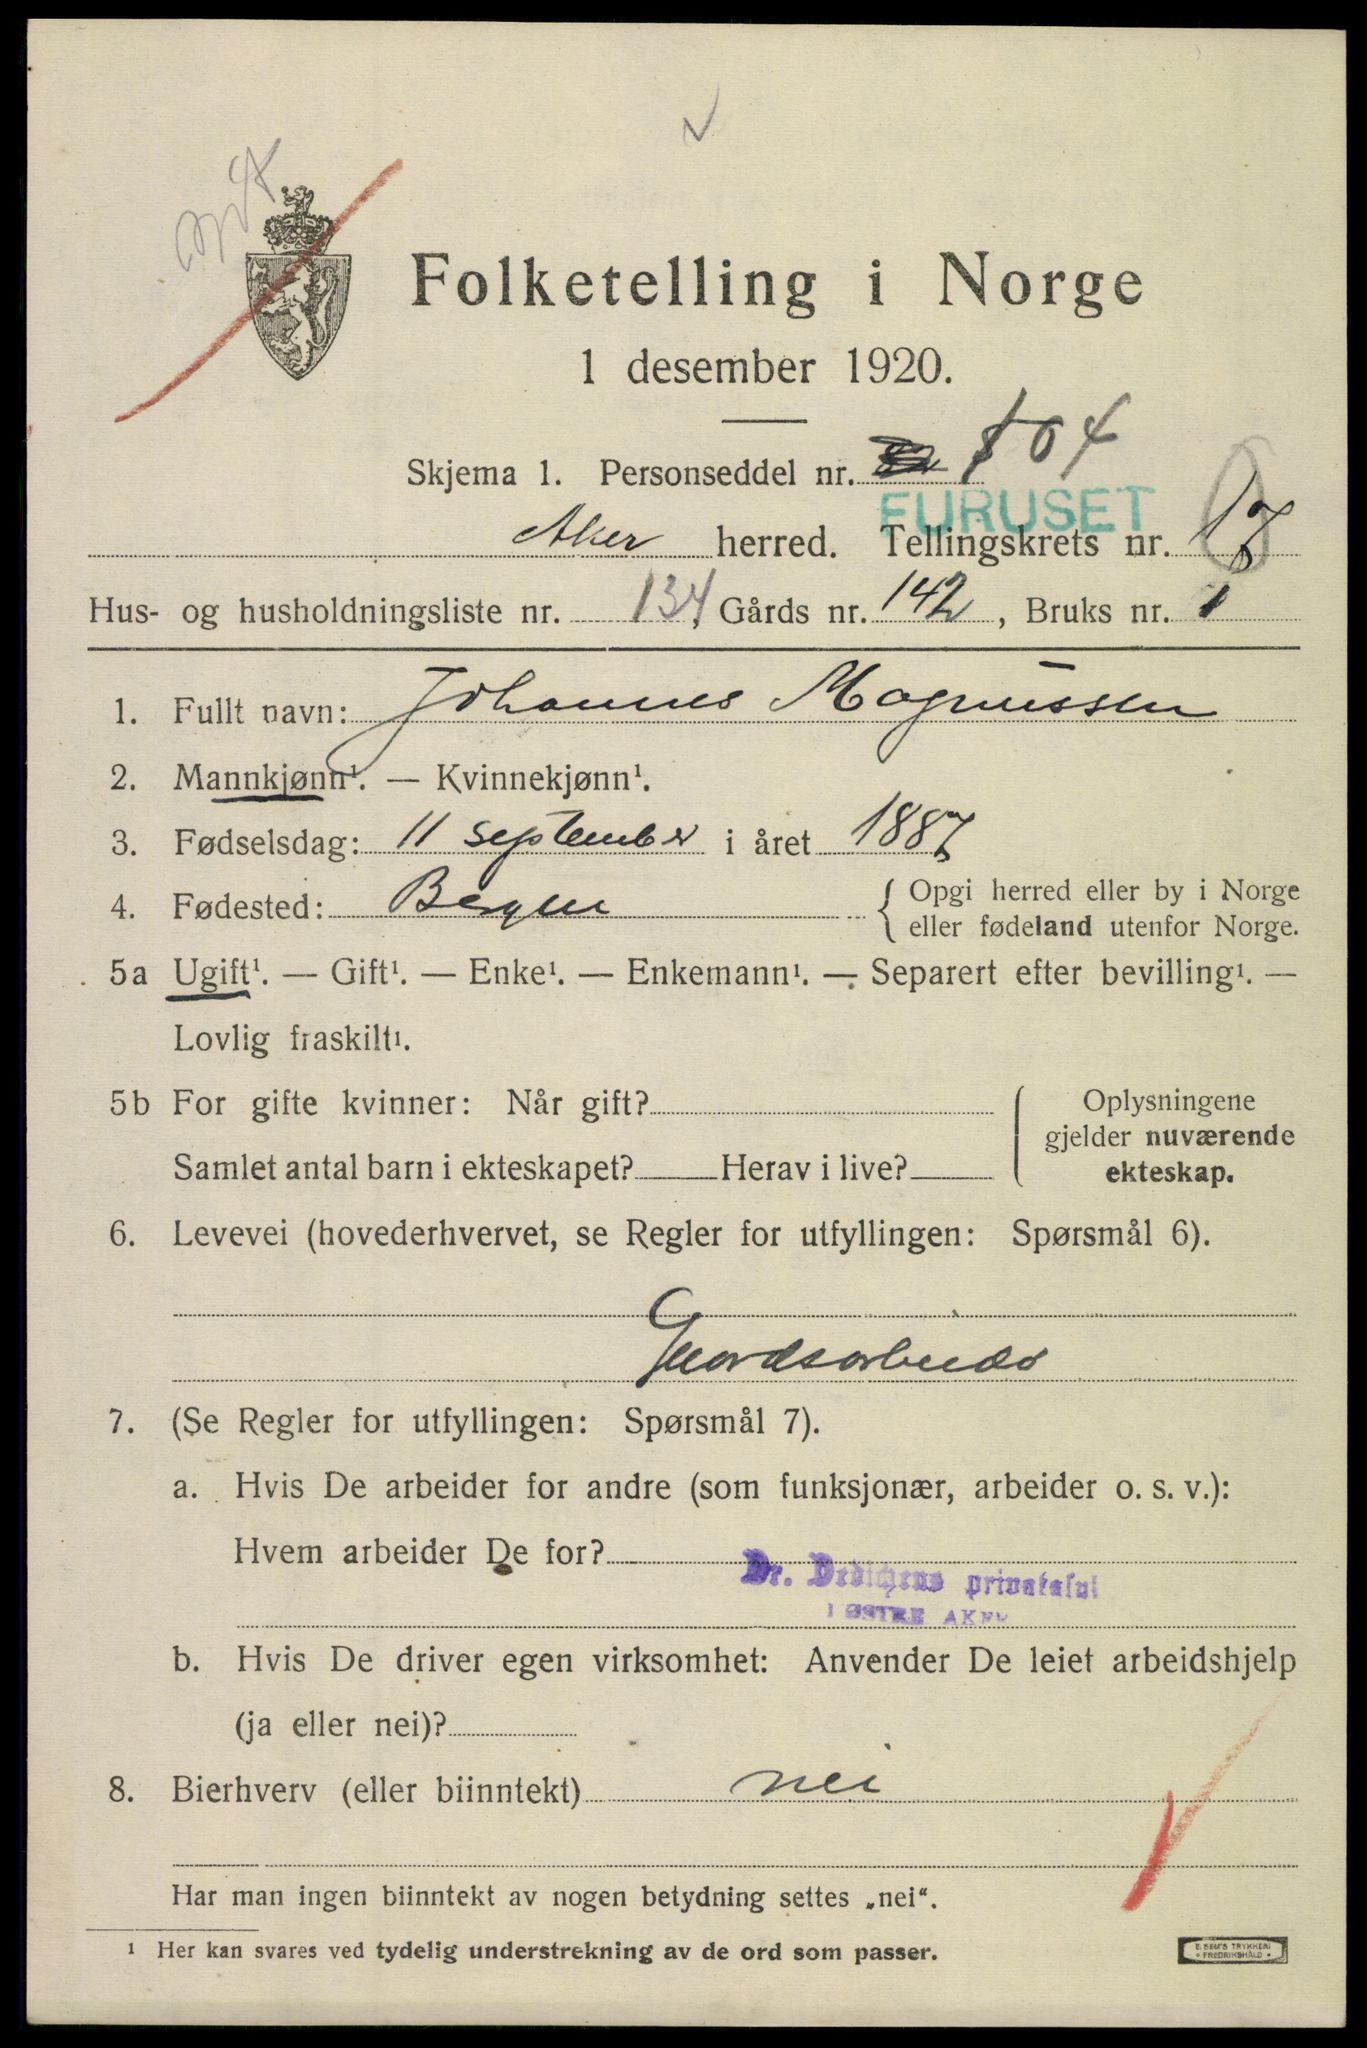 Folketelling i Norge
1 desember 1920.
Skjema 1. Personseddel nr. 104
FURUSET
Aker herred. Tellingskrets nr. 17
Hus- og husholdningsliste nr. 134, Gårds nr. 142, Bruks nr. 1
1. Fullt navn: Johannes Magnussen
2. Mannkjønn¹. — Kvinnekjønn¹.
3. Fødselsdag: 11 september i året 1887
4. Fødested: Bergen { Opgi herred eller by i Norge
eller fødeland utenfor Norge.
5a Ugift¹. — Gift¹. — Enke¹. — Enkemann¹. — Separert efter bevilling¹. —
Lovlig fraskilt¹.
5b For gifte kvinner: Når gift?
Samlet antal barn i ekteskapet? Herav i live?
Oplysningene
gjelder nuværende
ekteskap.
6. Levevei (hovederhvervet, se Regler for utfyllingen: Spørsmål 6).
Gaardsarbeider
7. (Se Regler for utfyllingen: Spørsmål 7).
a. Hvis De arbeider for andre (som funksjonær, arbeider o. s. v.):
Hvem arbeider De for?
Dr. Dedichens privatasyl
I ØSTRE AKER
b. Hvis De driver egen virksomhet: Anvender De leiet arbeidshjelp
(ja eller nei)?
8. Bierhverv (eller biinntekt) nei
Har man ingen biinntekt av nogen betydning settes „nei“.
¹ Her kan svares ved tydelig understrekning av de ord som passer.
E. SEM'S TRYKKERI
• FREDRIKSHALD •